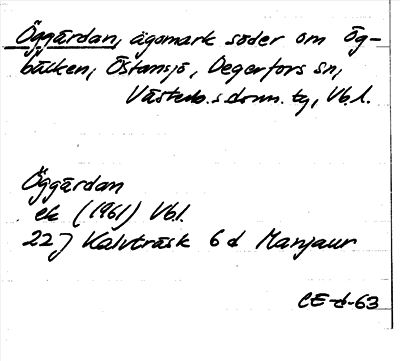 Öggärdan, ägomark söder om Ög-
bäcken, Östansjö, Degerfors sn,
Västerb.s dom. tg, Vb.l.
Öggärdan
ek (1961) Vbl.
22 J Kalvträsk 6 d Manjaur
CE-t-63